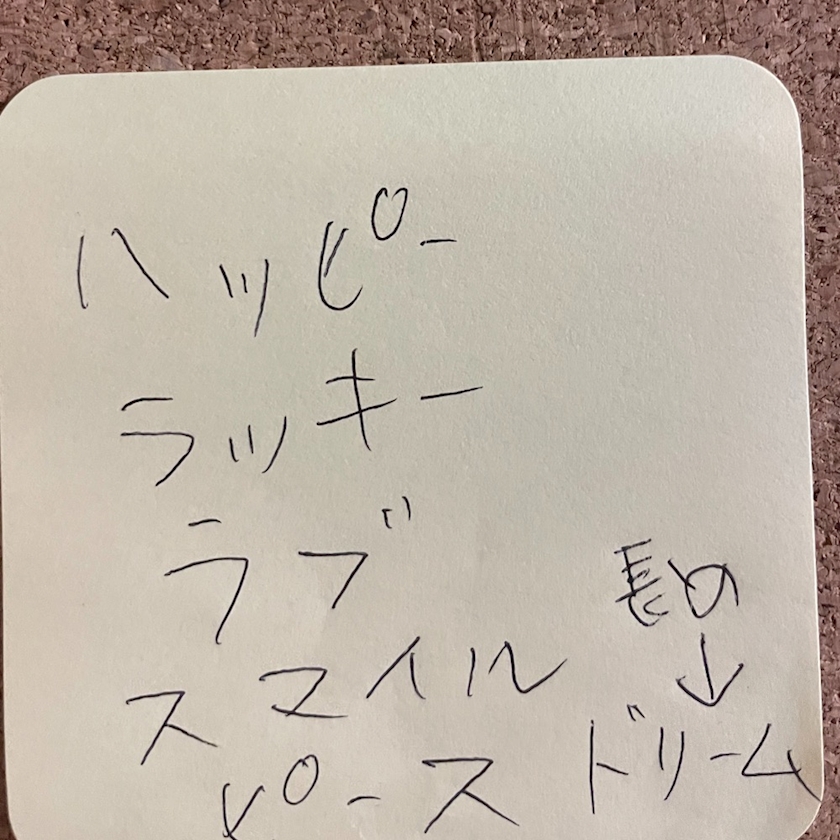 ハッピー
ラッキー
ラブ
スマイル
ピース
長め
↓
ドリーム